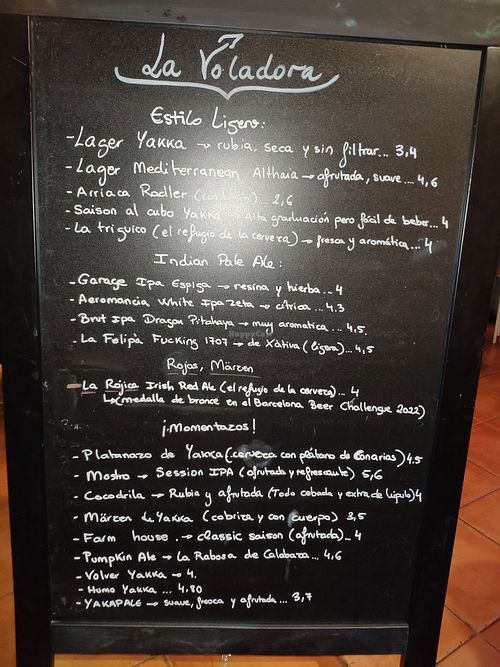 La Voladora
Estilo Ligero:
- Lager Yakka → rubia, seca y sin filtrar... 3,4
- Lager Mediterranean Althaia → afrutada, suave.... 4,6
- Arriaca Radler ... 2,6
- Saison al cubo Yakka → Alta graduación pero fácil de beber... 4
- La triguico (el refugio de la cerveza) → fresca y aromática... 4
Indian Pale Ale:
- Garage Ipa Espiga → resina y hierba... 4
- Aeromancia White Ipa Zeta → cítrica... 4.3
- Brut Ipa Dragon Pitahaya → muy aromatica... 4,5.
- La Felipa Fucking 1707 → de Xàtiva (ligera)... 4,5
Rojas, Märzen
- La Rojica Irish Red Ale (el refugio de la cerveza)... 4
↳ (medalla de bronce en el Barcelona Beer Challengue 2022)
¡Momentazos!
- Platanazo de Yakka (cerveza con plátano de Canarias) 4.5
- Mostro → Session IPA (afrutada y refrescante) 5,6
- Cocodrila → Rubia y afrutada (Todo cebada y extra de lúpulo) 4
- Märzen de Yakka (cobriza y con cuerpo) 3,5
- Farm house → classic saison (afrutada)... 4
- Pumpkin Ale → La Rabosa de Calabaza... 4,6
- Volver Yakka → 4.
- Humo Yakka... 4.80
- YAKAPALE → suave, fresca y afrutada... 3,7